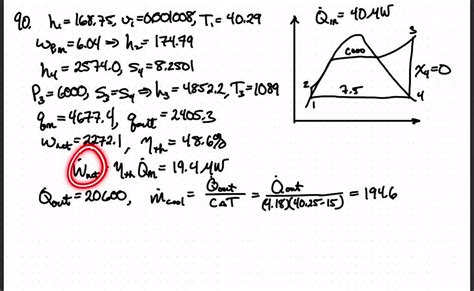 90. h₁ = 168.75, v₁ = 0.001008, T₁ = 40.29
w_Pm = 6.04 ⇒ h₂ = 174.79
h₄ = 2574.0, s₄ = 8.2501
P₃ = 6000, s₃ = s₄ ⇒ h₃ = 4852.2, T₃ = 1089
q_in = 4677.4, q_out = 2405.3
w_net = 2272.1, η_th = 48.6%
Ẇ_net = η_th Q̇_in = 19.4 MW
Q̇_out = 20600, ṁ_cool = Q̇_out / C ΔT = Q̇_out / (4.18)(40.25-15) = 194.6
Q̇_in = 40 MW
3
6000
x₄ = 0
2
7.5
1
4